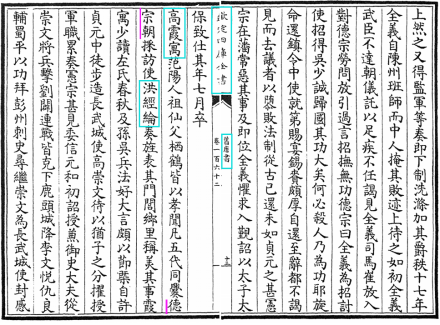 上然之又得監軍等奏即下制洗滌加其爵秩十七年
全義自陳州班師而中人掩其敗迹上待之如初全義
武臣不達朝儀託以足疾不任謁見全義司馬崔放入
對德宗勞問放引過言招撫無功德宗曰全義為招討
使招得吳少誠歸國其功大矣何必殺人乃為功耶旋
命還鎮令中使就第賜宴錫賚頗厚自還至辭都不謁
見而去議者以隳敗法制從古已還未如貞元之甚憲
宗在藩常惡其事及即位全義懼求入覲詔以太子太
欽定四庫全書
舊唐書
卷一百六十二
保致仕其年七月卒
高霞寓范陽人祖仙父栖鶴皆以孝聞凡五代同爨德
宗朝採訪使洪經綸奏旌表其門閭鄉里稱美其事霞
寓少讀左氏春秋及孫吳兵法好大言頗以節槩自許
貞元中徒步造長武城使高崇文待以猶子之分擢授
軍職累奏憲宗甚見委信元和初詔授兼御史大夫從
崇文將兵擊劉闢連戰皆克下鹿頭城降李文悦仇良
輔蜀平以功拜彭州刺史尋繼崇文為長武城使封感